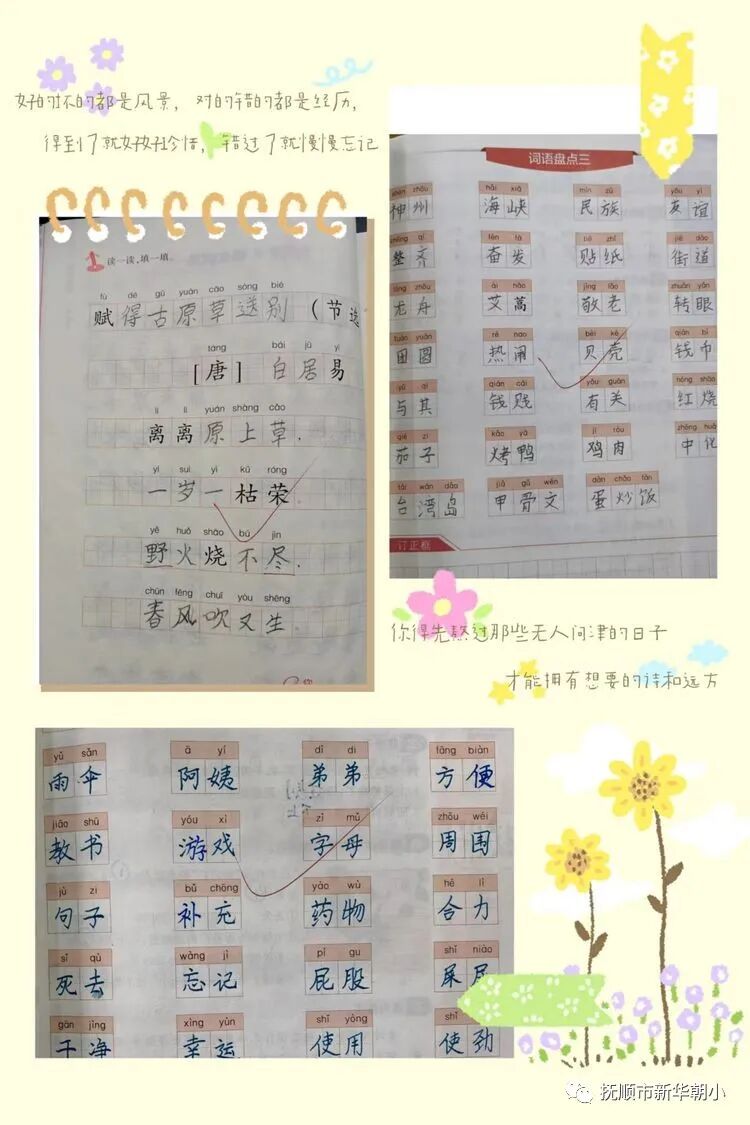 好的坏的都是风景，对的错的都是经历，
得到了就好好珍惜，错过了就慢慢忘记
读一读，填一填。
fù dé gǔ yuán cǎo sòng bié
赋得古原草送别（节选
táng bái jū yì
[唐] 白居易
lí lí yuán shàng cǎo
离离原上草.
yí suì yì kū róng
一岁一枯荣
yě huǒ shāo bú jìn
野火烧不尽.
chūn fēng chuī yòu shēng
春风吹又生
词语盘点三
zhōu hǎi xiá mín zú yǒu yì
神州 海峡 民族 友谊
zhěng qí fèn fā tiē zhǐ jiē dào
整齐 奋发 贴纸 街道
lóng zhōu ài hāo jìng lǎo zhuǎn yǎn
龙舟 艾蒿 敬老 转眼
tuán yuán rè nao bèi ké qián bì
团圆 热闹 贝壳 钱币
yǔ qí qián cái yǒu guān hóng shāo
与其 钱财 有关 红烧
qié zi kǎo yā jī ròu
茄子 烤鸭 鸡肉
tái wān dǎo jiǎ gǔ wén dàn chǎo fàn
台湾岛 甲骨文 蛋炒饭
订正框
你得先熬过那些无人问津的日子
才能拥有想要的诗和远方
yǔ sǎn ā yí dì di fāng biàn
雨伞 阿姨 弟弟 方便
jiāo shū yóu xì zì mǔ zhōu wéi
教书 游戏 字母 周围
jù zi bǔ chōng yào wù hé lì
句子 补充 药物 合力
sǐ qù wàng jì pì gu shǐ niào
死去 忘记 屁股 屎尿
gān jìng xìng yùn shǐ yòng shǐ
干净 幸运 使用 使劲
抚顺市新华朝小